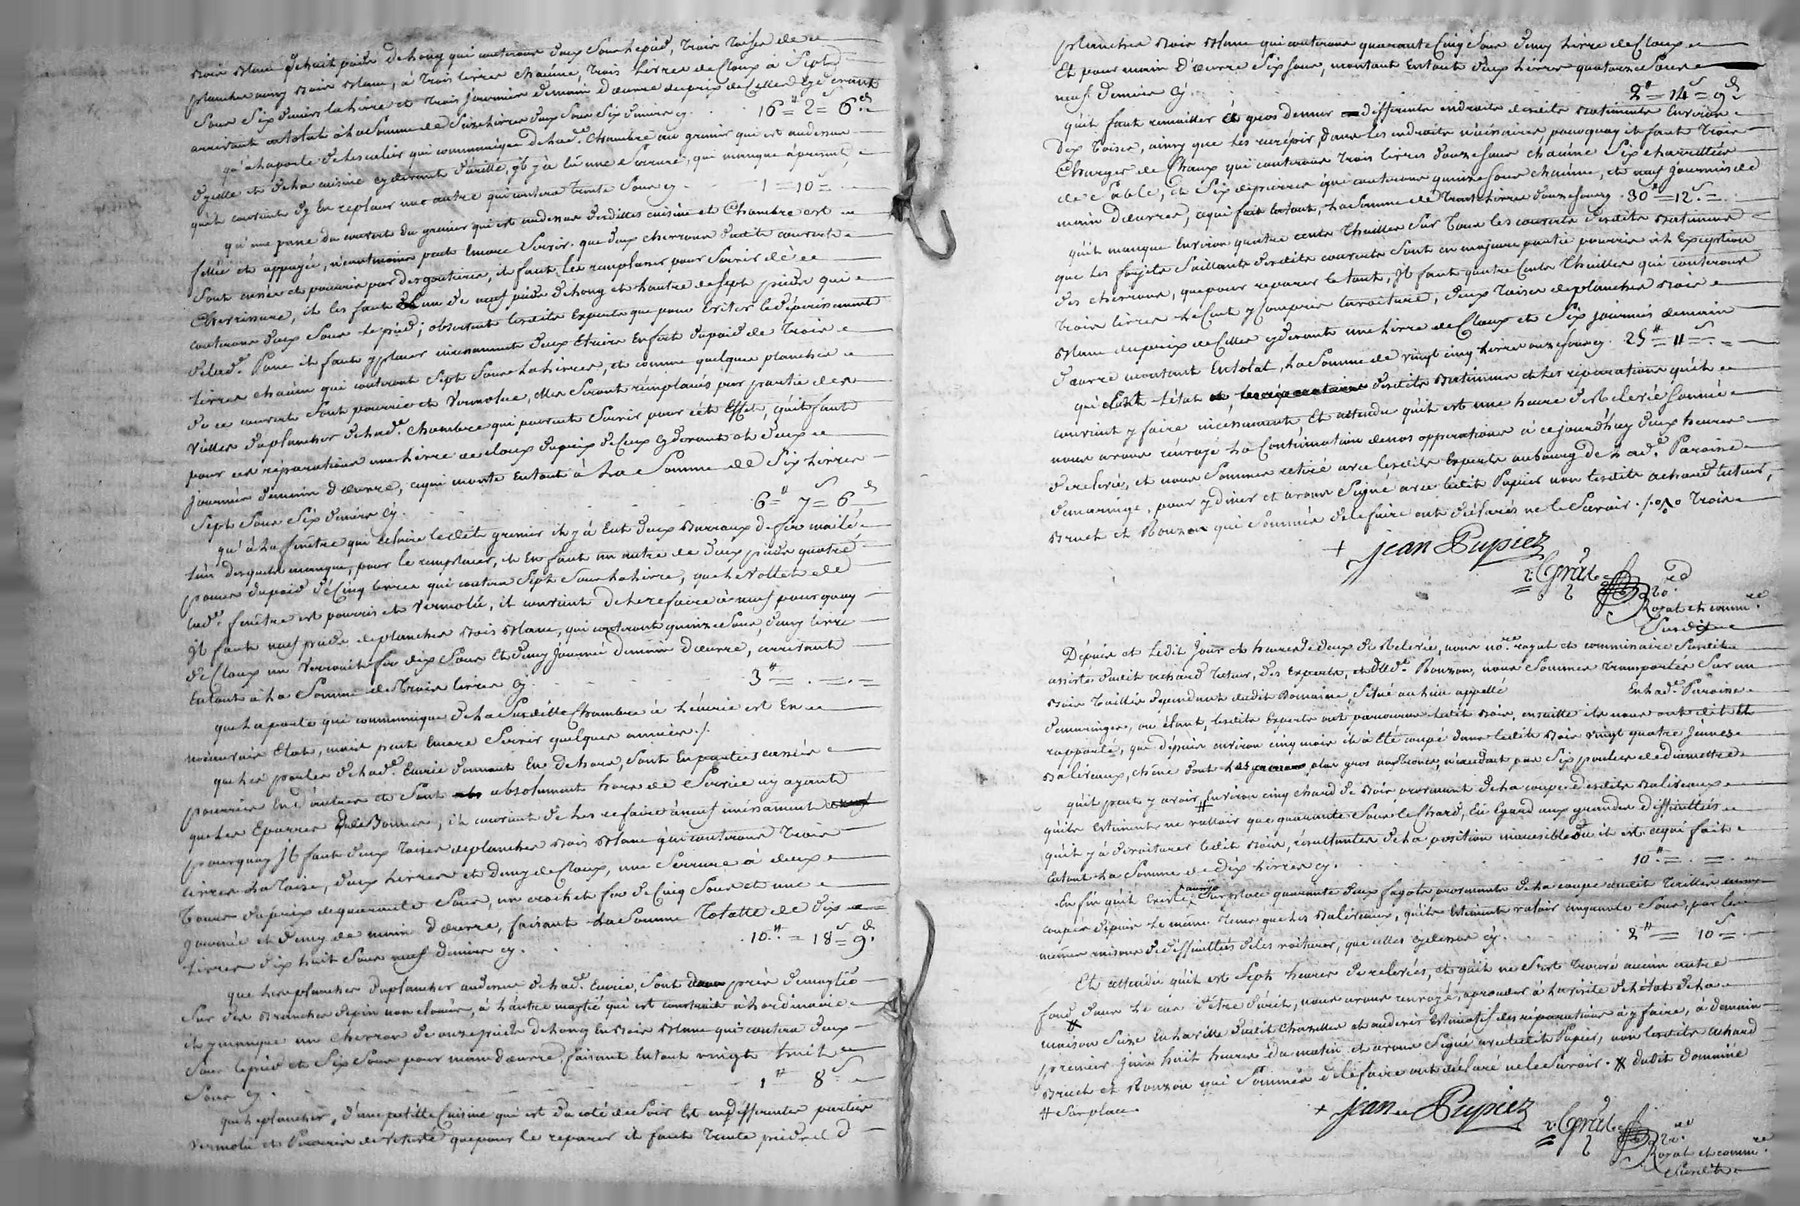 Bois Blanc de huit pieds de long qui couteront deux sous le pied, trois toises de
planches aussy Bois Blanc, à trois livres chacune, trois livres de Cloux à Sept
Sous Six deniers la livre et trois journées de main d'œuvre au prix de Celles Cy devant
arrivant au total à la somme de Seize livres deux Sous Six deniers Cy. 16# = 2S = 6d
qu'à la porte de l'escalier qui communique de lad.e Chambre au grenier qui est au dessus
d'icelle et de la cuisine cy devant d'taillé, il y a une serrure, qui manque à présent,
qu'il convient d'y En replacer une autre qui coutera trente Sous Cy. 1 = 10 =
qu'une panne du couvert du grenier qui est au dessus desdittes cuisine et Chambre est
fellée et appuyée, néantmoins peut Encore Servir. que deux chevrons dudit couvert
Sont cassés et pourris par des goutières, il faut les remplacer pour Servir de
Chevrissure, il les faut un de neuf pieds de long et l'autre de sept pieds qui
couteront deux Sous le pied; observent lesdits Experts que pour Eviter le dépérissement
de lad.e Pane il faut y placer incessamment deux Etriers En fer du poid de trois
livres chacun qui couteront Sept Sous la livre, et comme quelques planches
du ce couvert Sont pourries et Vermolue, elles Seront remplacés par partie de
celles du plancher de lad.e Chambre qui peuvent Servir pour cet Effet, qu'il faut
pour ces réparations une livre de cloux du prix de ceux Cy devant et deux
journées de main d'œuvre, ce qui monte Entout à La Somme de Six livres
Sept Sous Six deniers Cy. 6# = 7S = 6d
qu'à la fenêtre qui éclaire ledit grenier il y a Eut deux Barreaux de fer maillé
l'un desquels manque, pour le remplacer, il En faut un autre de deux pieds quatre
pouces du poid de Cinq livres qui coutera Sept Sous la livre, que le Vollet de
lad.e fenêtre est pourris et Vermolu, il convient de le refaire à neuf pourquoy
Il faut neuf pieds de planches Bois Blanc, qui couteront quinze Sous, demy livre
de Cloux un Verrouil fer dix Sous Et demy journée de main d'œuvre, arrivant
Entout à la Somme de trois livres Cy. 3# = . = . =
que la porte qui communique de la Susditte Chambre à l'écurie est En
mauvais Etat, mais peut Encore Servir quelques années./.
que les portes de lad.e Ecurie donnant En dehors, Sont En parties cassées
pourries En d'autres et Sont absolument hors de Service n'y ayant
que les Eparres de Bonnes, il convient de les refaire à neuf incessamment
pourquoy Il faut deux toises de planches Bois Blanc qui couteront trois
livres la toise, deux livres et demy de Cloux, une Serrure à deux
tours du prix de quarante Sous, un crochet fer de Cinq Sous et une
journée et demy de main d'œuvre, faisant la Somme Totalle de dix
livres dix huit Sous neuf deniers Cy. 10# = 18S = 9d.
que les planches du plancher au dessus de lad.e Ecurie, Sont près de moitié
Sur des Branches de pin non clouées, à l'autre moytié qui est construit à l'ordinaire
il y manque un chevron de onze pieds de long En Bois Blanc qui coutera deux
Sous le pied et Six Sous pour main d'œuvre, faisant Entout vingt huit
Sous Cy. 1# 8S
que le plancher, d'une petitte Cuisine qui est du coté du Soir Est en differentes parties
Vermolu et Pourris de Vetusté que pour le reparer il faut trente pieds de
planches Bois Blanc qui couteront quarante Cinq Sous demy livre de Cloux
Et pour main d'œuvre Six Sous, montant Entout deux livres quatorze Sous
neuf deniers Cy. 2# = 14S = 9d
qu'il faut remailler à gros denier differents endroits desdits Batiments Environ
dix toises, ainsy que les récrépir dans les endroits nécessaires pourquoy il faut trois
Charges de Chaux qui couteront trois livres douze Sous chacune Six charretées
de Sable, et Six de pierres qui couteront quinze Sous chacune, et neuf journées de
main d'œuvres, ce qui fait Entout, La Somme de Trente livres douze Sous Cy. 30# = 12S. =.
qu'il manque Environ quatre cents thuilles Sur tous les couverts desdits Batiments
que les forjets Saillants desdits couverts Sont en majeure partie pourris à l'Exception
des chevrons, que pour reparer le tout, Il faut quatre Cents thuilles qui couteront
trois livres le Cent y Compris la voiture, deux toises de planches Bois
Blanc du prix de Celles cy devant une livre de Cloux et Six journées de main
d'œuvre montant Entotal, La Somme de vingt cinq livres onze Sous Cy. 25# = 11S =
qui Est l'état desdits Batiments et les réparations qu'il
convient y faire incessamment Et attendu qu'il est une heure de Relevée Sonnée
nous avons renvoyé La Continuation de nos opperations à cejourd'huy deux heures
de relevée, et nous Sommes retiré avec lesdits Experts au bourg de lad.e Paroisse
de maringe, pour y diner et avons Signé avec ledit Pupier non lesdits achard tuteur,
Bruel et Rouzon qui Sommés de le faire ont déclarés ne le Savoir. /. trois
+ jean Pupier
Royal et comm.re
Susdit
Dépuis et ledit Jour et heure de deux de Relevée, nous no.re royal et commissaire Susdit
assisté dudit achard tuteur, des Experts, et dud. Rouzon, nous Sommes transportés Sur un
Bois taillis dependant dudit Domaine, Situé au lieu appellé En lad.e Paroisse
de maringe, ou étant, lesdits Experts ont parcourus ledit Bois, ensuitte ils nous ont dit et
rapporté, que dépuis environ cinq mois il à Eté coupé dans ledit Bois vingt quatre Jeunes
Baliveaux, chêne dont les plus gros au tronc, n'excedait pas Six pouces de diamettre
qu'il peut y avoir, # Environ cinq chard de Bois provenant de la coupe desdits Baliveaux
qu'ils Estiment ne valloir que quarante Sous le Chard, Eu Egard aux grandes difficultés
qu'il y à de voiturer ledit Bois, résultantes de la position inaccessible ou il est ce qui fait
Entout la Somme de dix livres Cy. 10# = . = .
En fin qu'il Existe aussy Sur place quarante deux fagots provenants de la coupe dudit taillis
coupés dépuis le même tems que les Baliveaux, qu'ils Estiment valoir cinquante Sous, par les
mêmes raisons de difficultés de les voiturer, que celles cy dessus Cy. 2# = 10S = .
Et attendu qu'il est Sept heures de relevées, et qu'il ne S'est trouvé aucun autre
fond dans le cas d'être décrit, nous avons renvoyé, a proceder à la visite de l'état de la
maison Sise En la ville dudit Chazelles et au devis Estimatif des réparations à y faire, à demain
premier Juin huit heures du matin et avons Signé avec ledit Pupier, non lesdits achard
Bruel et Rouzon qui Sommés de le faire ont déclaré ne le Savoir. # dudit domaine
# Sur place
+ jean Pupier
Royal et comm.re
Susdit